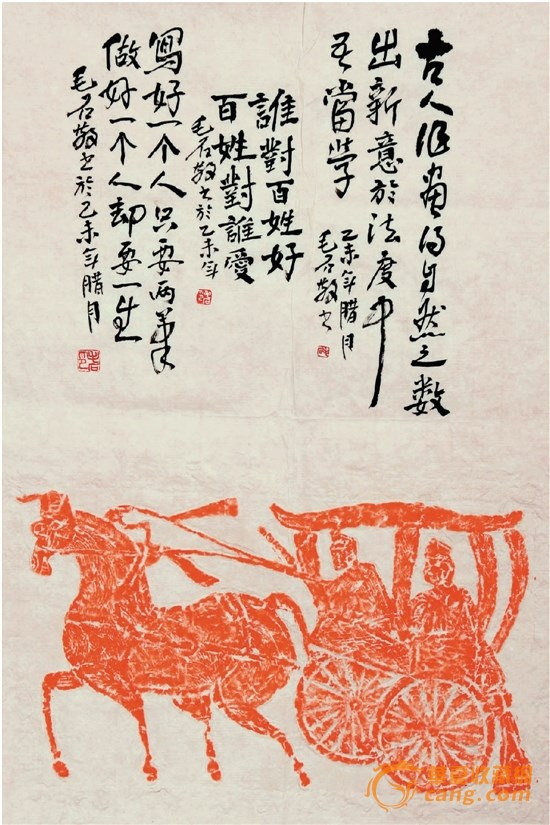 古人作畫得自然之数
出新意於法度中
吾當学
乙未年腊月
毛书
誰對百姓好
百姓對誰愛
毛书於乙未年
寫好一个人只要两筆
做好一个人却要一生
毛书於乙未年腊月
cang.com